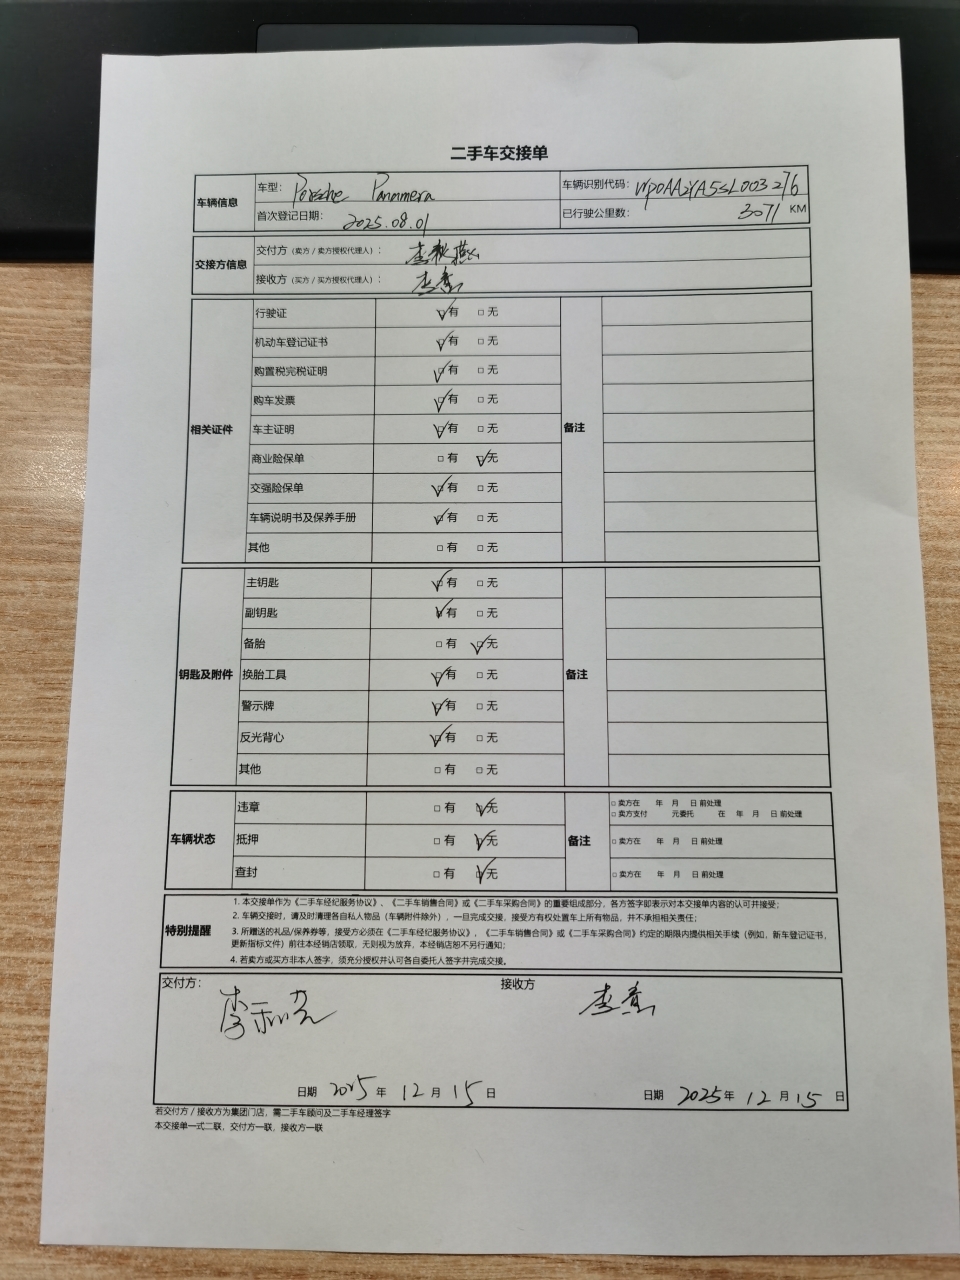 二手车交接单
车辆信息
车型: Porsche Panamera
车辆识别代码: WP0AA2YA5SL003276
首次登记日期: 2025.08.01
已行驶公里数: 3071 KM
交接方信息
交付方（卖方/卖方授权代理人）: 李
接收方（买方/买方授权代理人）: 李
相关证件
行驶证 ☑有 □无
机动车登记证书 ☑有 □无
购置税完税证明 ☑有 □无
购车发票 ☑有 □无
车主证明 ☑有 □无
商业险保单 □有 ☑无
交强险保单 ☑有 □无
车辆说明书及保养手册 ☑有 □无
其他 □有 □无
备注
钥匙及附件
主钥匙 ☑有 □无
副钥匙 ☑有 □无
备胎 □有 ☑无
换胎工具 ☑有 □无
警示牌 ☑有 □无
反光背心 ☑有 □无
其他 □有 □无
备注
车辆状态
违章 □有 ☑无
抵押 □有 ☑无
查封 □有 ☑无
备注
□ 卖方在 年 月 日 前处理
□ 卖方支付 元委托 在 年 月 日 前处理
□ 卖方在 年 月 日 前处理
□ 卖方在 年 月 日 前处理
特别提醒
1. 本交接单作为《二手车经纪服务协议》、《二手车销售合同》或《二手车采购合同》的重要组成部分，各方签字即表示对本交接单内容的认可并接受；
2. 车辆交接时，请及时清理各自私人物品（车辆附件除外），一旦完成交接，接受方有权处置车上所有物品，并不承担相关责任；
3. 所赠送的礼品/保养券等，接受方必须在《二手车经纪服务协议》、《二手车销售合同》或《二手车采购合同》约定的期限内提供相关手续（例如，新车登记证书，
更新指标文件）前往本经销店领取，无则视为放弃，本经销店恕不另行通知；
4. 若卖方或买方非本人签字，须充分授权并认可各自委托人签字并完成交接。
交付方: 李
接收方 李
日期 2025 年 12 月 15 日
日期 2025 年 12 月 15 日
若交付方/接收方为集团门店，需二手车顾问及二手车经理签字
本交接单一式二联，交付方一联，接收方一联